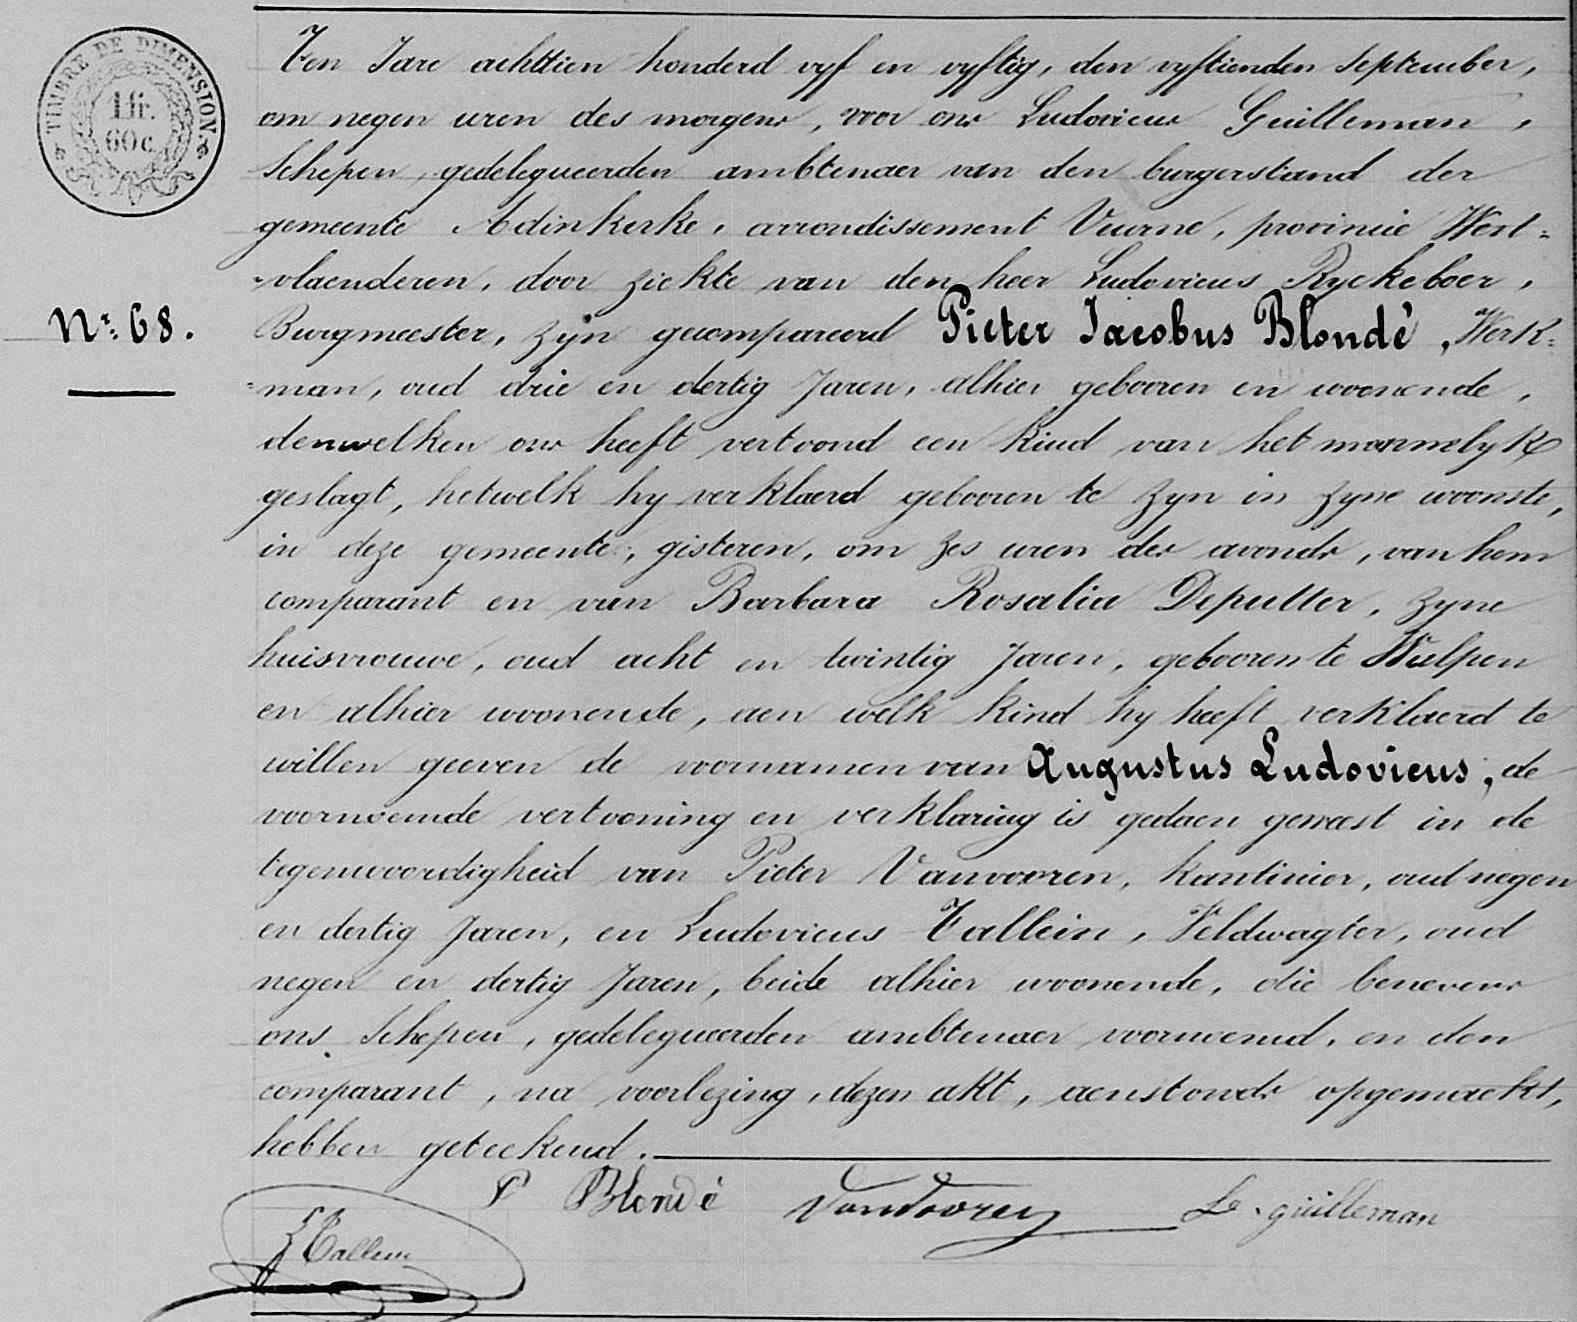 TIMBRE DE DIMENSION.
1 fr.
60 c.
Ten Jare achttien honderd vyf en vyftig, den vyftienden September,
om negen uren des morgens, voor ons Ludovicus Guilleman,
Schepen, gedelegueerden ambtenaer van den burgerstand der
gemeente Adinkerke, arrondissement Veurne, provincie West=
=vlaenderen, door ziekte van den heer Ludovicus Ryckeboer,
Nr. 68.
Burgmeester, zyn gecompareerd Pieter Jacobus Blondé, Werk=
=man, oud drie en dertig Jaren, alhier gebooren en woonende,
denwelken ons heeft vertoond een kind van het mannelyk
geslagt, hetwelk hy verklaerd gebooren te zyn in zyne woonste,
in deze gemeente, gisteren, om zes uren des avonds, van hem
comparant en van Barbara Rosalia Deputter, zyne
huisvrouwe, oud acht en twintig Jaren, gebooren te Wulpen
en alhier woonende, aen welk kind hy heeft verklaerd te
willen geeven de voornamen van Augustus Ludovicus, de
voornoemde vertooning en verklaring is gedaen geweest in de
tegenwoordigheid van Pieter Vanvooren, kantinier, oud negen
en dertig Jaren, en Ludovicus Tallein, Veldwagter, oud
negen en dertig Jaren, beide alhier woonende, die benevens
ons Schepen, gedelegueerden ambtenaer voornoemd, en den
comparant, na voorlezing, dezen akt, aenstonds opgemaekt,
hebben geteekend.
P Blondé Vanvooren L. guilleman
L Tallein